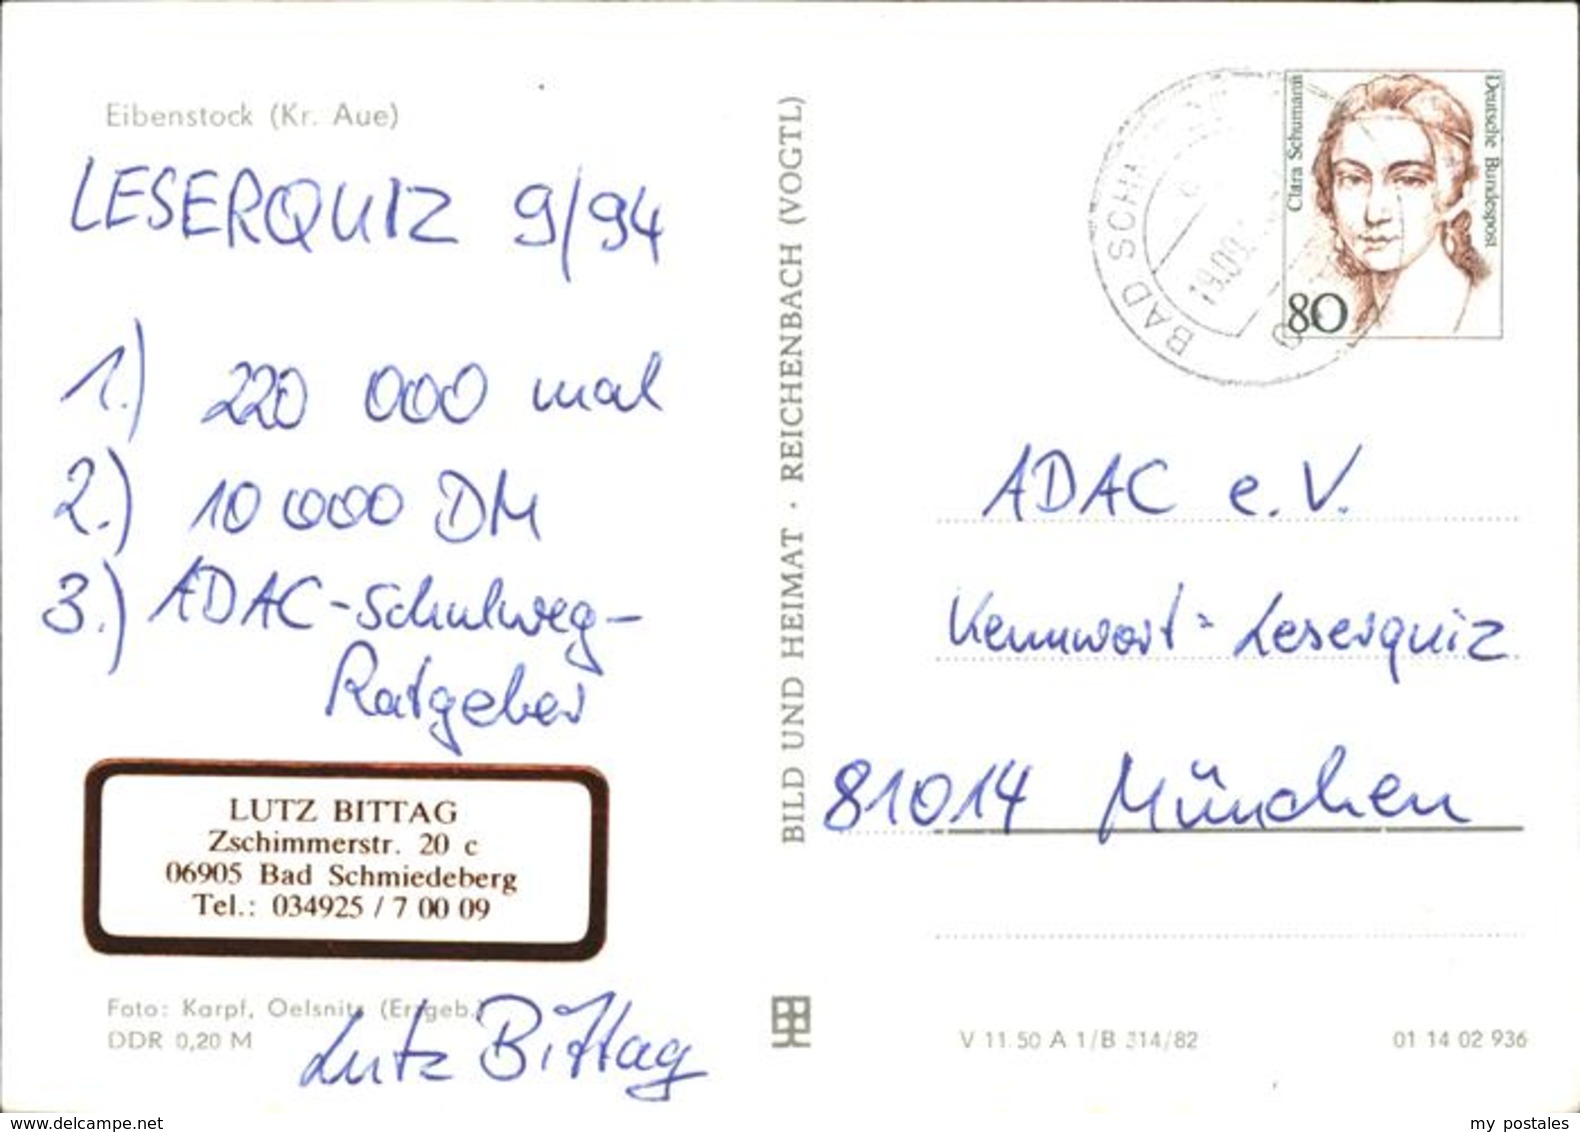 Eibenstock (Kr. Aue)
LESERQUIZ 9/94
1.) 220 000 mal
2.) 10 000 DM
3.) ADAC-Schulweg-
Ratgeber
LUTZ BITTAG
Zschimmerstr. 20 c
06905 Bad Schmiedeberg
Tel.: 034925 / 7 00 09
Foto: Karpf, Oelsnitz (Erzgeb.)
DDR 0,20 M
Lutz Bittag
BILD UND HEIMAT · REICHENBACH (VOGTL)
BAD SCH
19.09.
Clara Schumann
Deutsche Bundespost
80
ADAC e.V.
Kennwort: Leserquiz
81014 München
V 11.50 A 1/B 314/82
01 14 02 936
www.delcampe.net
my postales